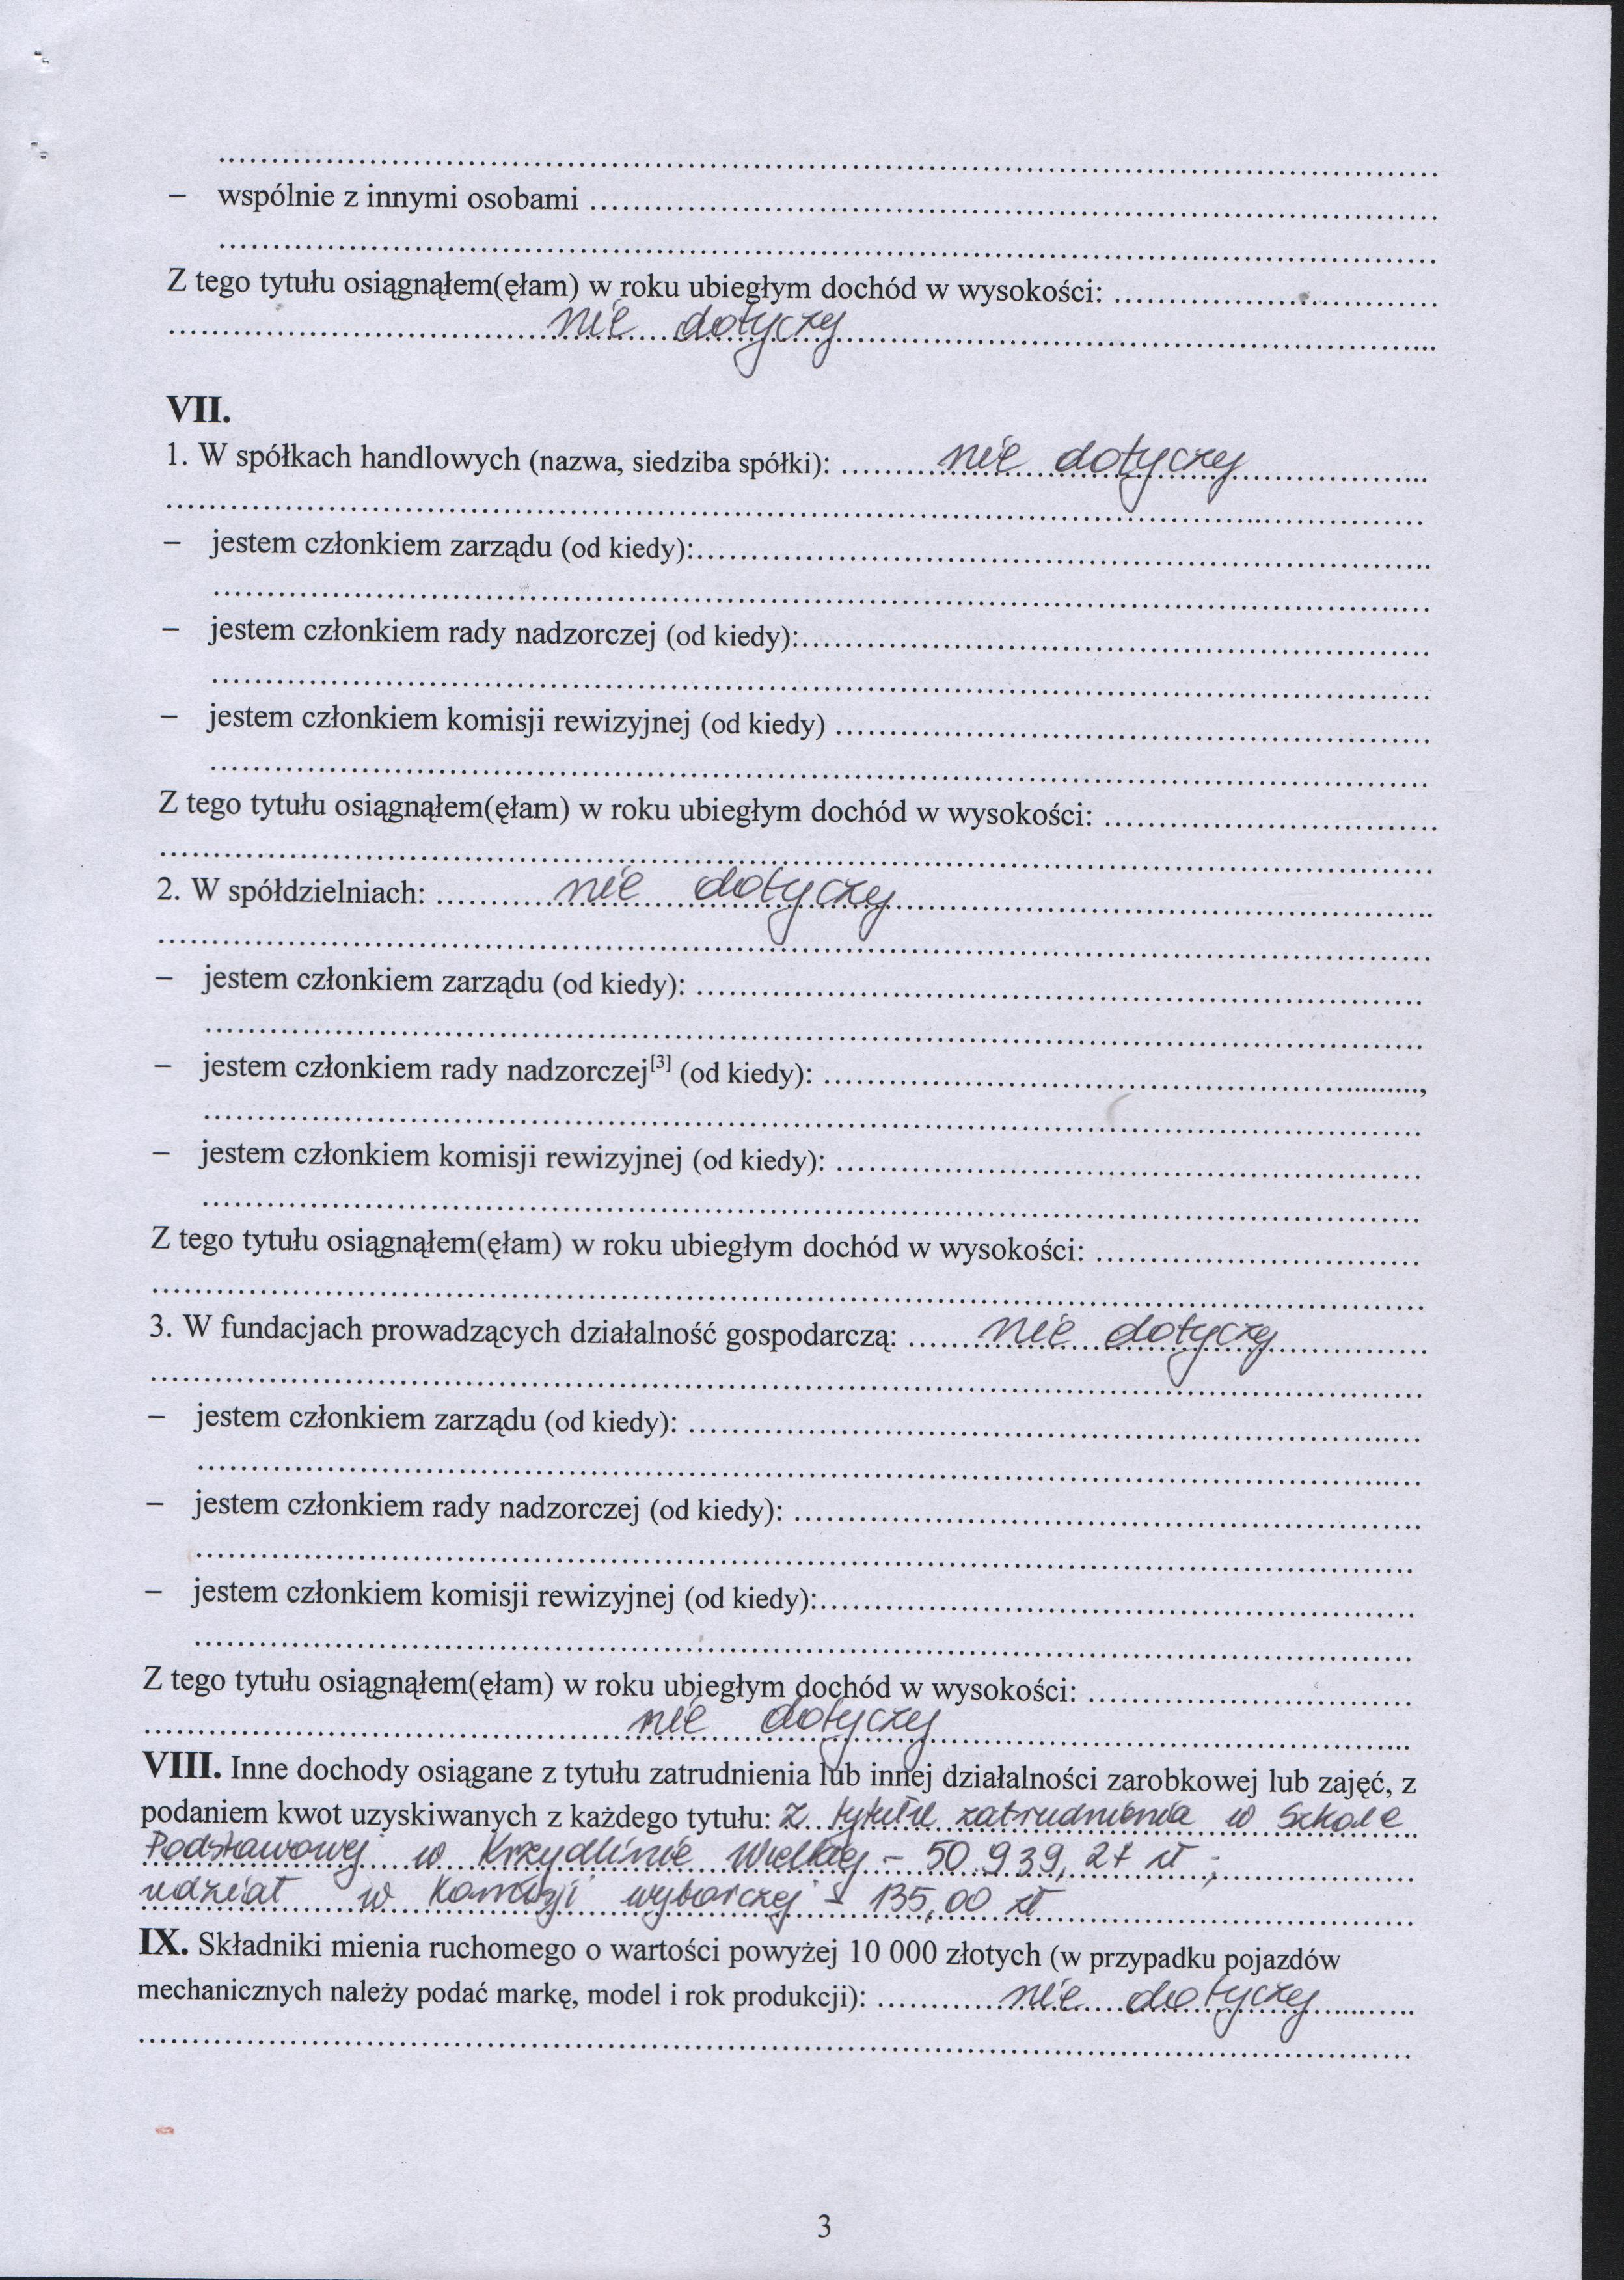 – wspólnie z innymi osobami ..........
Z tego tytułu osiągnąłem(ęłam) w roku ubiegłym dochód w wysokości: ..........
nie dotyczy
VII.
1. W spółkach handlowych (nazwa, siedziba spółki): .......... nie dotyczy
– jestem członkiem zarządu (od kiedy):..........
– jestem członkiem rady nadzorczej (od kiedy):..........
– jestem członkiem komisji rewizyjnej (od kiedy) ..........
Z tego tytułu osiągnąłem(ęłam) w roku ubiegłym dochód w wysokości: ..........
2. W spółdzielniach: .......... nie dotyczy
– jestem członkiem zarządu (od kiedy): ..........
– jestem członkiem rady nadzorczej[3] (od kiedy): ..........,
– jestem członkiem komisji rewizyjnej (od kiedy): ..........
Z tego tytułu osiągnąłem(ęłam) w roku ubiegłym dochód w wysokości: ..........
3. W fundacjach prowadzących działalność gospodarczą: .......... nie dotyczy
– jestem członkiem zarządu (od kiedy): ..........
– jestem członkiem rady nadzorczej (od kiedy): ..........
– jestem członkiem komisji rewizyjnej (od kiedy):..........
Z tego tytułu osiągnąłem(ęłam) w roku ubiegłym dochód w wysokości: ..........
nie dotyczy
VIII. Inne dochody osiągane z tytułu zatrudnienia lub innej działalności zarobkowej lub zajęć, z
podaniem kwot uzyskiwanych z każdego tytułu: z tytułu zatrudnienia w Szkole
Podstawowej w Krzydlinie Wielkiej – 50 939,27 zł ;
udział w Komisji wyborczej – 135,00 zł
IX. Składniki mienia ruchomego o wartości powyżej 10 000 złotych (w przypadku pojazdów
mechanicznych należy podać markę, model i rok produkcji): .......... nie dotyczy
3